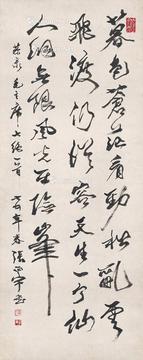 暮色苍茫看劲松乱云
飞渡仍从容天生一个仙
人洞无限风光在险峰
毛主席七绝一首
年春张